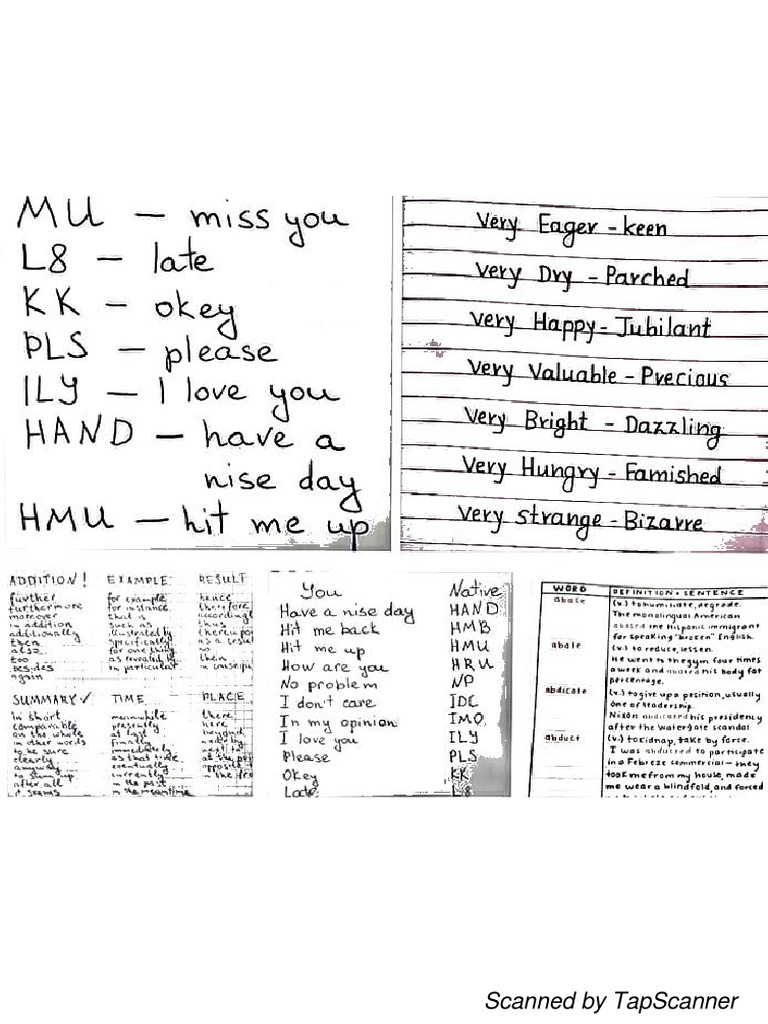 MU – miss you
L8 – late
KK – okey
PLS – please
ILY – I love you
HAND – have a
nise day
HMU – hit me up
Very Eager - keen
Very Dry - Parched
Very Happy - Jubilant
Very Valuable - Precious
Very Bright - Dazzling
Very Hungry - Famished
Very strange - Bizarre
ADDITION!
further
furthermore
moreover
in addition
additionally
then
also
too
besides
again
EXAMPLE
for example
for instance
that is
such as
illustrated by
specifically
for one thing
as revealed by
in particular
RESULT
hence
therefore
thus
SUMMARY ✓
in short
on the whole
in other words
to be sure
clearly
anyway
to sum up
after all
it seems
TIME
meanwhile
presently
at last
finally
immediately
eventually
currently
in the past
in the meantime
PLACE
there
here
beyond
You Native
Have a nise day HAND
Hit me back HMB
Hit me up HMU
How are you HRU
No problem NP
I don't care IDC
In my opinion IMO
I love you ILY
Please PLS
Okey KK
Late
WORD DEFINITION + SENTENCE
abase (v.) to humiliate, degrade.
The monolingual American
abased the Hispanic immigrant
for speaking "broken" English.
abate (v.) to reduce, lessen.
He went to the gym four times
a week and abated his body fat
percentage.
abdicate (v.) to give up a position, usually
one of leadership.
Nixon abdicated his presidency
after the Watergate scandal
abduct (v.) to kidnap, take by force.
I was abducted to participate
in a Febreze commercial – they
took me from my house, made
me wear a blindfold, and forced
Scanned by TapScanner